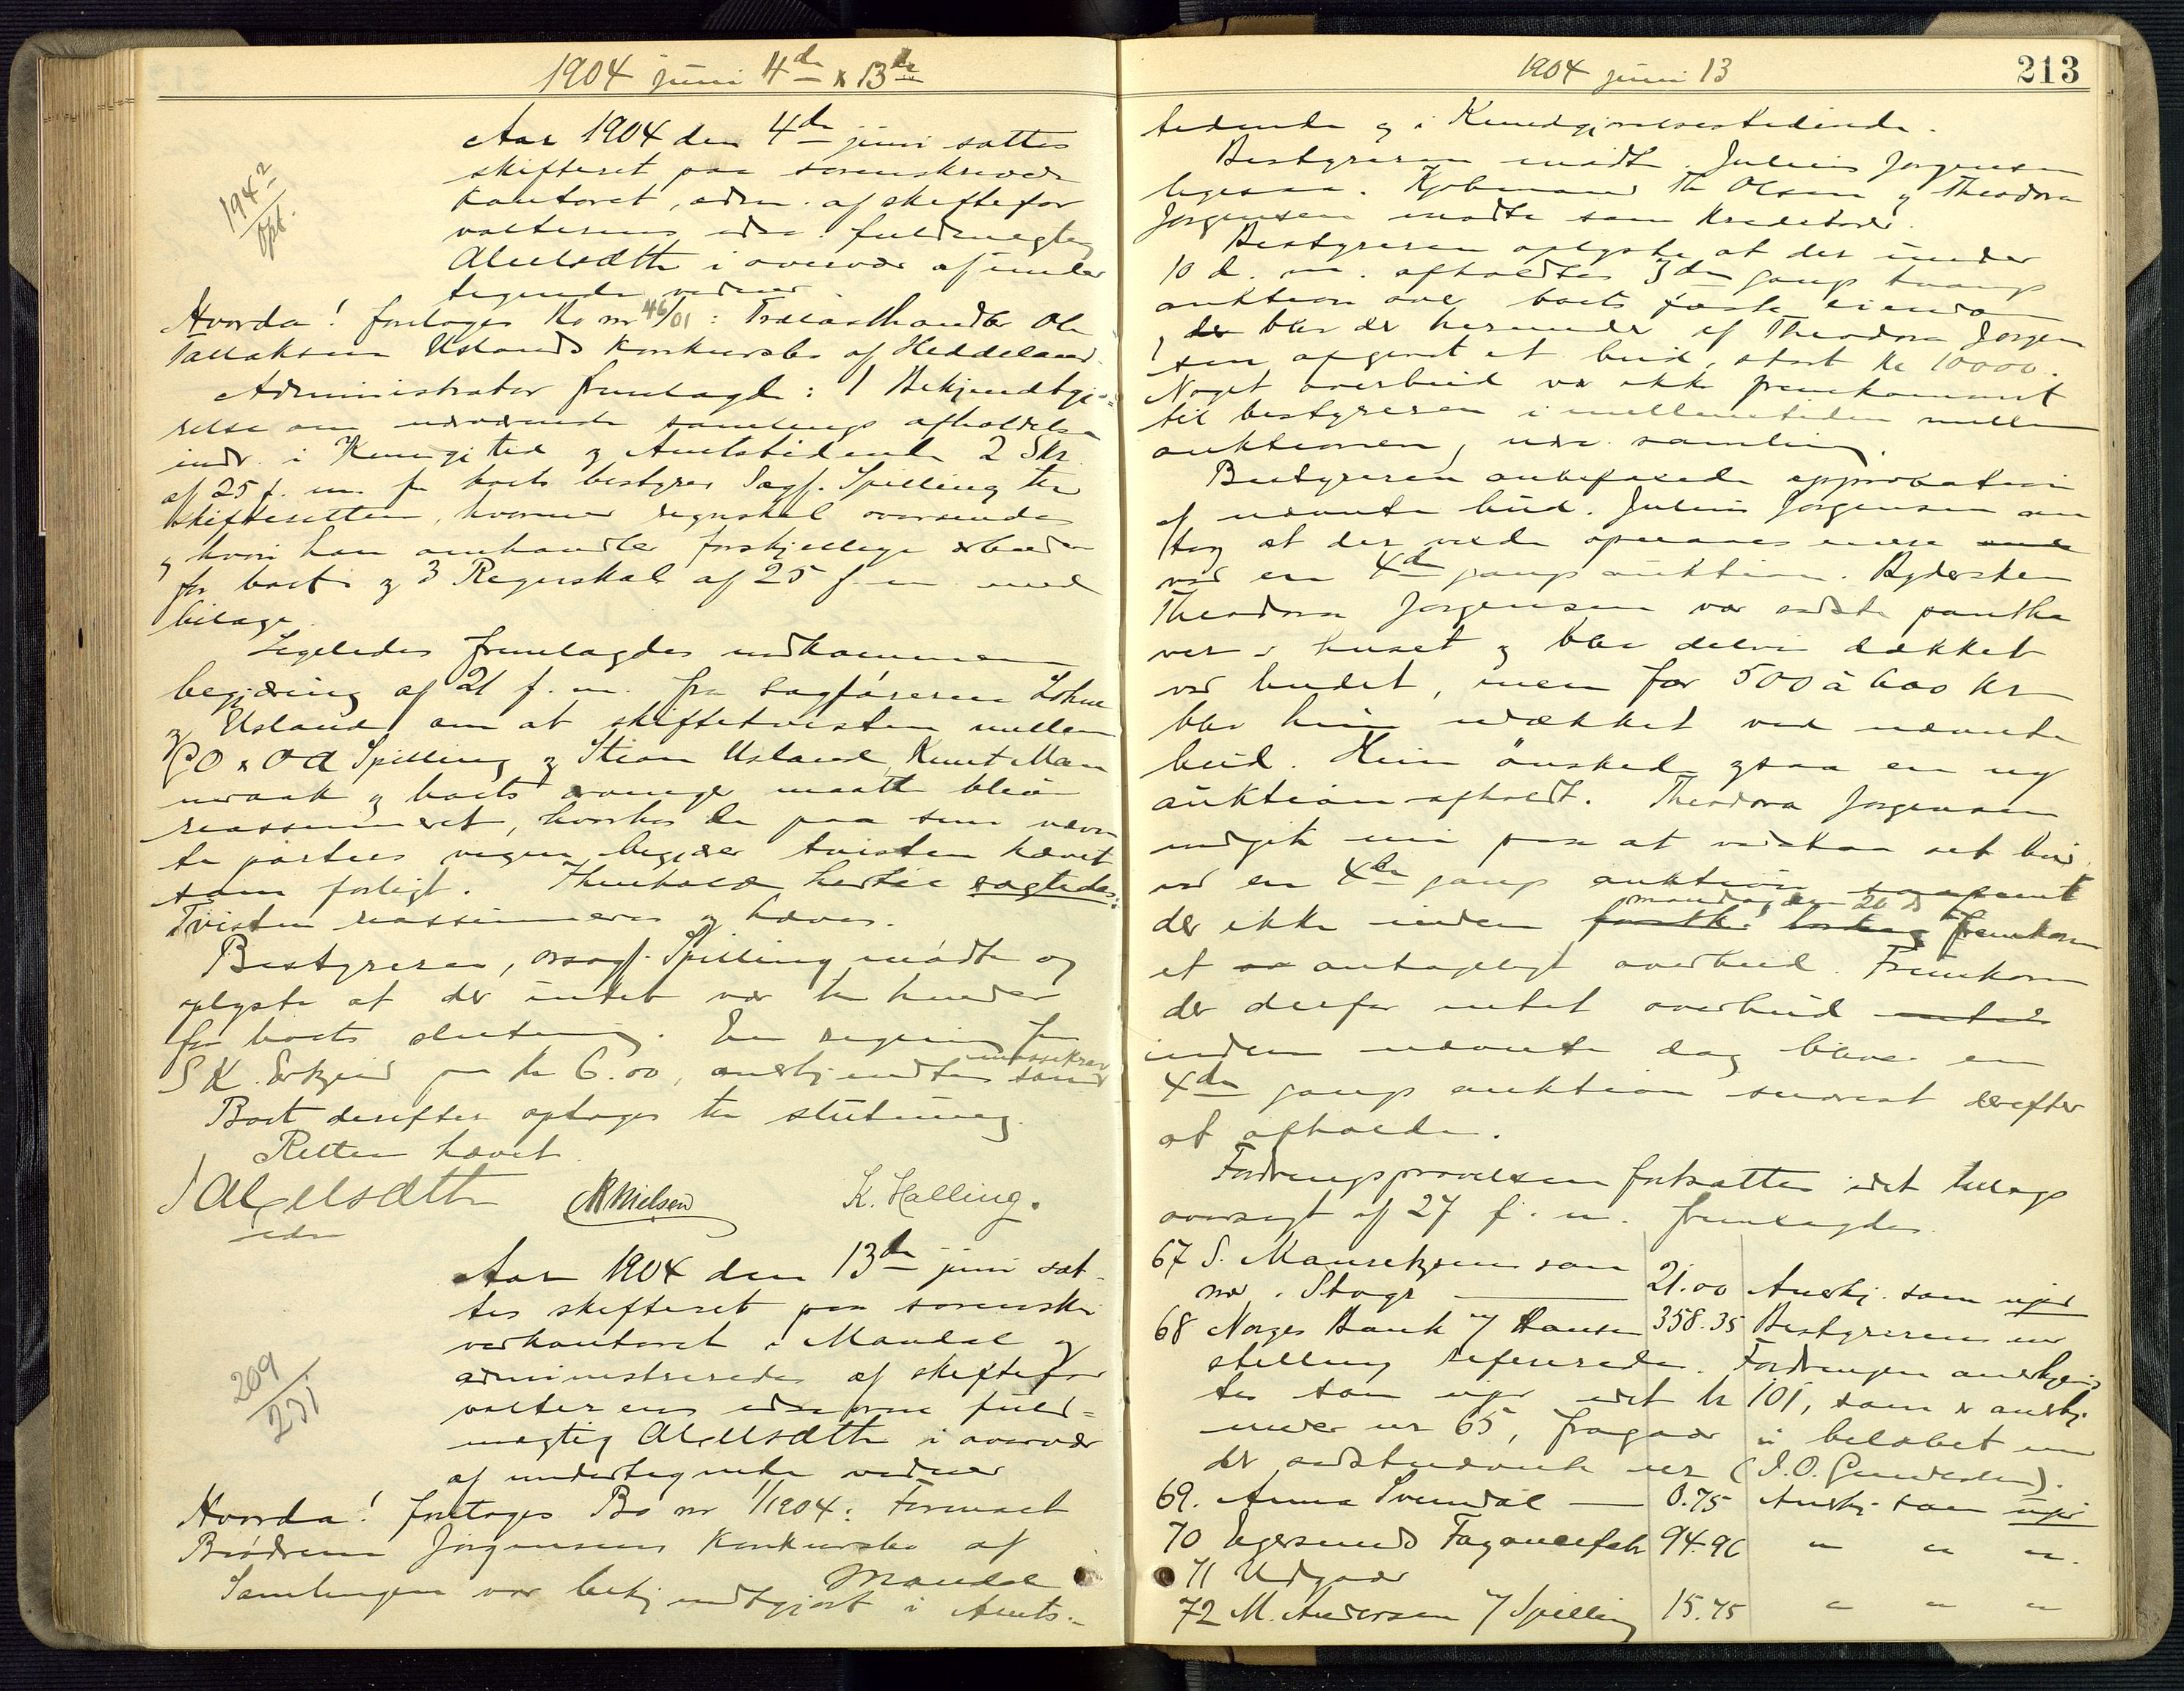 1904 juni 4de & 13de
Aar 1904 den 4de juni sattes
skifteret paa sorenskriver
kontoret, adm. af skiftefor
valterens edsv. fuldmægtig
i overvær af under
tegnede vidner
194²/opt.
Hvorda! foretoges Bo nr 46/01: Trælasthandler Ole
Tallaksen Uslands konkursbo af Heddeland.
Administrator fremlagde: 1 Bekjendtgjø-
relse om nærværende samlings afholdelse
indr. i Kungj.tid og Amtstidende 2 Skr.
af 25 f. m. fra boets bestyrer Sagf. Spilling til
skifteretten, hvormed regnskab oversendes
og hvori han omhandler forskjellige arbeider
for boet og 3 Regnskab af 25 f. m med
bilage.
Ligeledes fremlagdes indkommen
begjæring af 21 f. m. fra sagførerne Lohne
og Usland om at skiftetvisten mellem
P O & O A Spilling og Stian Usland, Knut Man
nvaak og boets øvrige maatte blive
reassumeret, hvorhos de paa sine nævn
te parters vegne begjærer tvisten hævet
som forligt. I henhold hertil sagtedes:
Tvisten reassumeres og hæves.
Bestyreren, orsagf. Spilling mødte og
oplyste at der intet var til hinder
for boets slutning. En regning fra
S K. Erkjend paa kr 6.00, anerkjendtes som massekrav
Boet derefter optoges til slutning.
Retten hævet.
MNielsen K. Halling.
edsv
Aar 1904 den 13de juni sat-
tes skifteret paa sorenskri
verkontoret i Mandal og
administreredes af skiftefor
valterens edsvorne fuld-
mægtig i overvær
af undertegnede vidner
209/231
Hvorda! foretoges Bo nr 1/1904: Firmaet
Brødrene Jørgensens konkursbo af
Mandal
Samlingen var bekjendtgjort i Amts-
1904 juni 13
213
tidende og i Kundgjørelsestidende.
Bestyreren mødte. Julius Jørgensen
ligesaa. Kjøbmand Th Olsen og Theodora
Jørgensen mødte som kreditorer.
Bestyreren oplyste at der under
10 d. m. afholdtes 3die gangs tvangs
auktion over boets faste eiendom
og blev der herunder af Theodora Jørgen
sen afgivet et bud, stort kr 10000.
Noget overbud var ikke fremkommet
til bestyreren i mellemtiden mellem
auktionen og nærv. samling.
Bestyreren anbefalede approbation
af nævnte bud. Julius Jørgensen an
tog at der vilde opnaaes mere
ved en 4de gangs auktion. Hydersten
Theodora Jørgensen var sidste pantha
ver i huset og blev delvis dækket
ved budet, men for 500 à 600 kr
blev hun udækket ved nævnte
bud. Hun ønskede ogsaa en ny
auktion afholdt. Theodora Jørgensen
indgik nu paa at vedstaa sit bud
ved en 4de gangs auktion
der ikke inden mandag den 20 ds fremkom
et antageligt overbud. Fremkom
der derfor intet overbud
inden nævnte dag bliver en
4de gangs auktion snarest derefter
at afholde.
Fordringsprøvelsen fortsattes idet tillægs
oversigt af 27 f. m. fremlagdes.
67 S. Mansekjeens søn
nær. Stage —— 21.00 Anerkj. som upr
68 Norges Bank v/ Hansen 358.35 Bestyrerens ind
stilling refereredes. Fordringen anerkjend
tes som upr idet kr 101, som er anerkj.
under nr 65, fragaar i beløbet under
det sidstnævnte nr (J.O. Gundersen).
69. Anna Svendal — 0.75 Anerkj. som upr
70 Egersunds Fayancefabr 94.96 " " ".
71 Udgaar
72 M. Andersen v/ Spilling 15.75 " " "